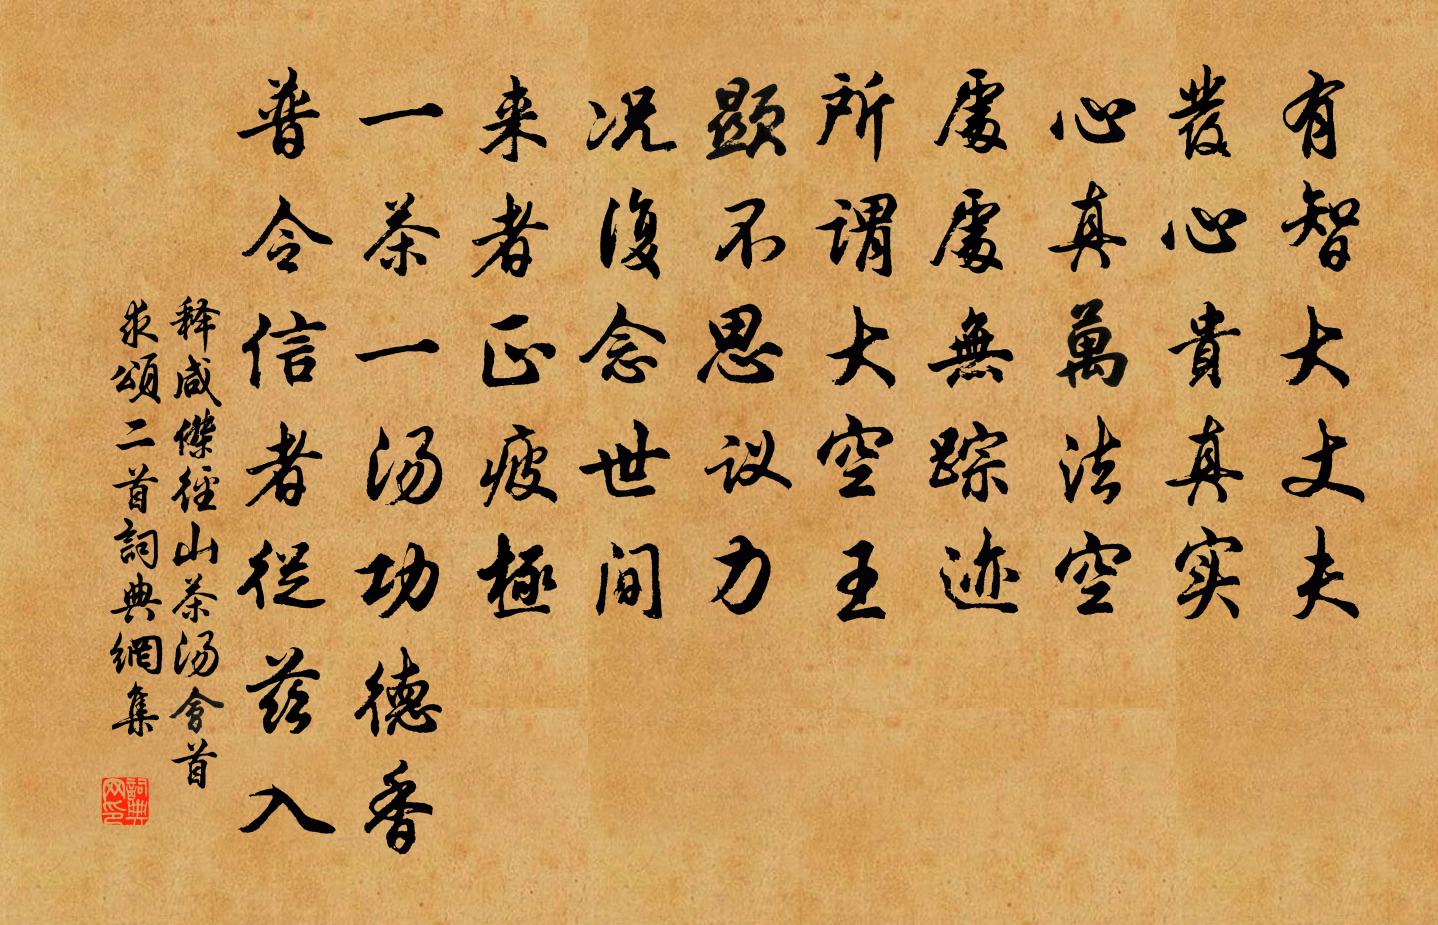 有智大丈夫
發心貴真实
心真萬法空
處處無踪迹
所謂大空王
顯不思议力
况復念世间
来者正疲極
一茶一汤功德香
普令信者從兹入
释咸傑徑山茶汤會首
求頌二首詞典網集
詞典网印